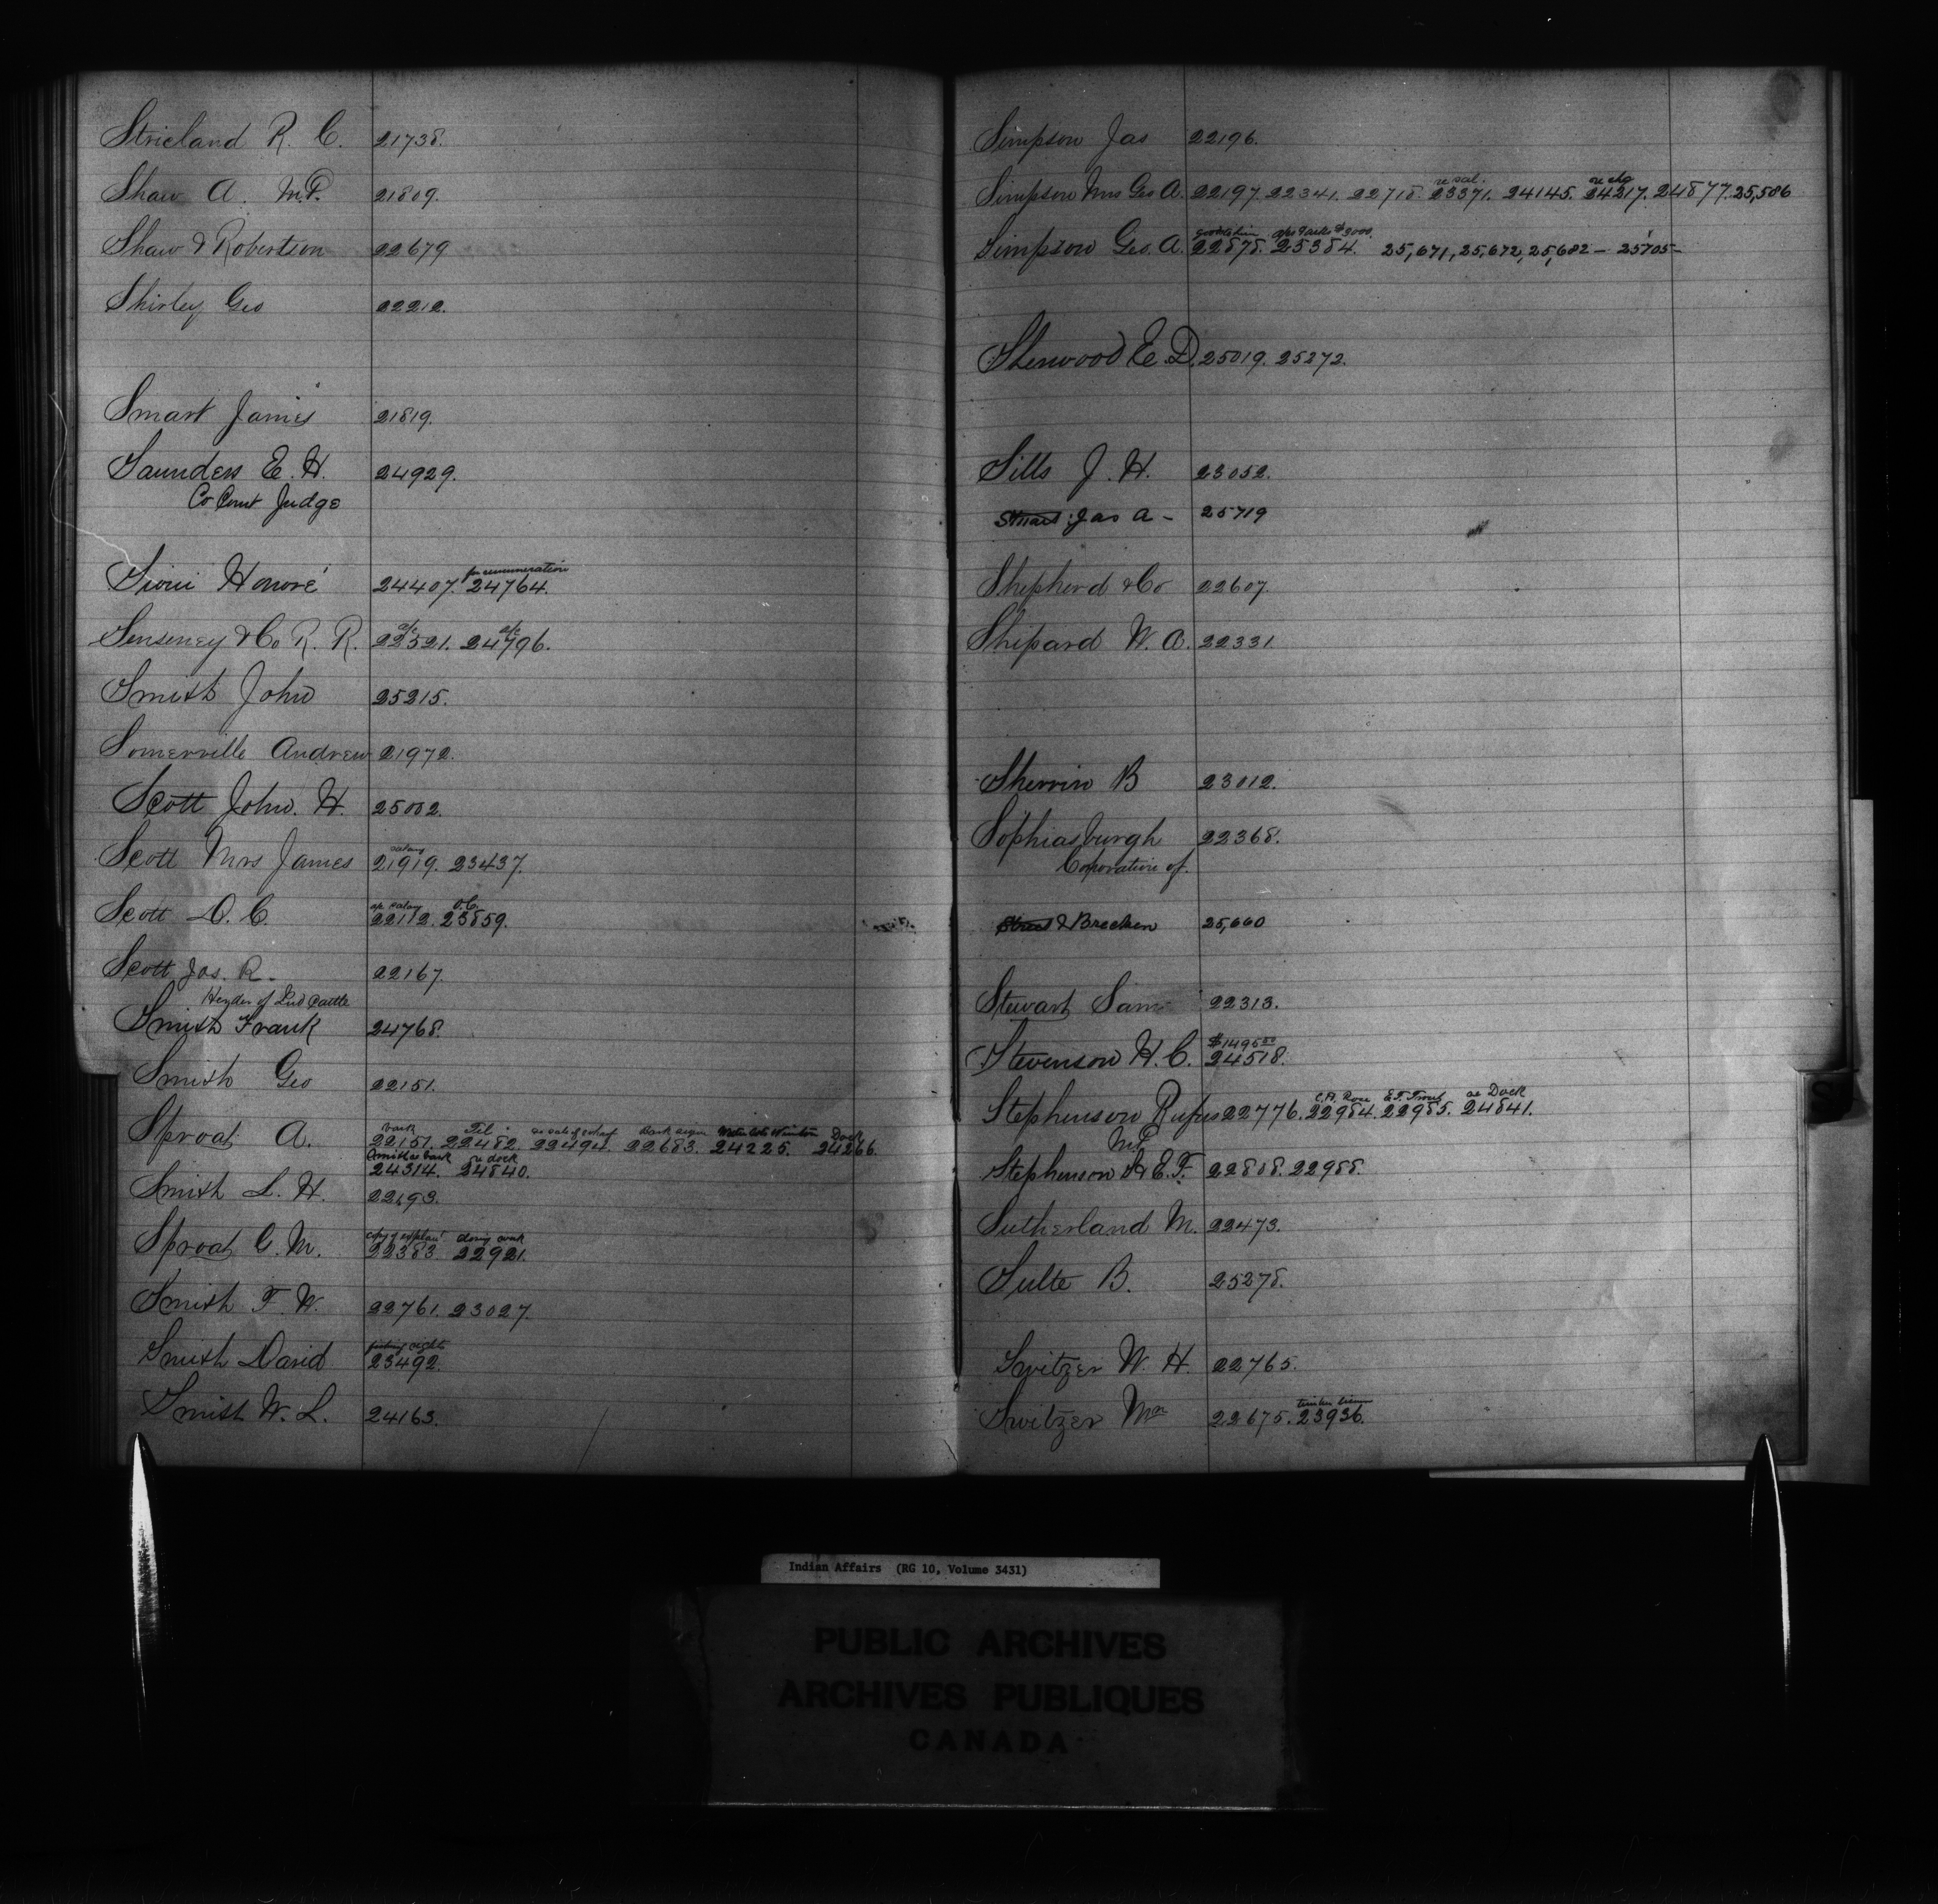 Stricland R. C. 21738.
Shaw A. M.P. 21809.
Shaw & Robertson 22679
Shirley Geo 22212.
Smart James 21819.
Saunders E. H. 24929.
Co Court Judge
for remuneration
Sioui Honoré 24407. 24764.
a/c a/c
Senseney & Co R. R. 22521. 24796.
Smith John 25215.
Somerville Andrew 21972.
Scott John. H. 25002.
salary
Scott Mrs James 21919. 23437.
salary O.C.
Scott D. C. 22112. 23859.
Scott Jas. R. 22167.
Herder of Ind Cattle
Smith Frank 24768.
Smith Geo 22151.
bark Tel. re sale of wharf Dock
Sproat A. 22151. 22482. 22494. 22683. 24225. 24266.
re dock
24314. 24840.
Smith L. H. 22193.
Sproat G. M. 22383 22921.
Smith F. W. 22761. 23027.
fishing rights
Smith David 23492.
Smith W. L. 24163.
Simpson Jas 22196.
re sal.
Simpson Mrs Geo A. 22197. 22341. 22718. 23371. 24145. 24217. 24877. 25,586
Simpson Geo. A. 22878. 25384. 25,671, 25,672, 25,682 - 25705 -
Sherwood E. D. 25019. 25272.
Sills J. H. 23052.
Stuart Jas A - 25719
Shepherd & Co 22607.
Shipard W. A. 22331.
Sherrin B 23012.
Sophiasburgh 22368.
Corporation of.
Street & Brecken 25,660
Stewart Sam 22313.
$1495
Stevenson H. C. 24518.
re Dock
Stephenson Rufus 22776. 22984. 22985. 24841.
MP
Stephenson E. F. 22808. 22988.
Sutherland M. 22473.
Sulte B. 25278.
Switzer W. H. 22765.
timber
Switzer Mr 22675. 23936.
Indian Affairs (RG 10, Volume 3431)
PUBLIC ARCHIVES
ARCHIVES PUBLIQUES
CANADA